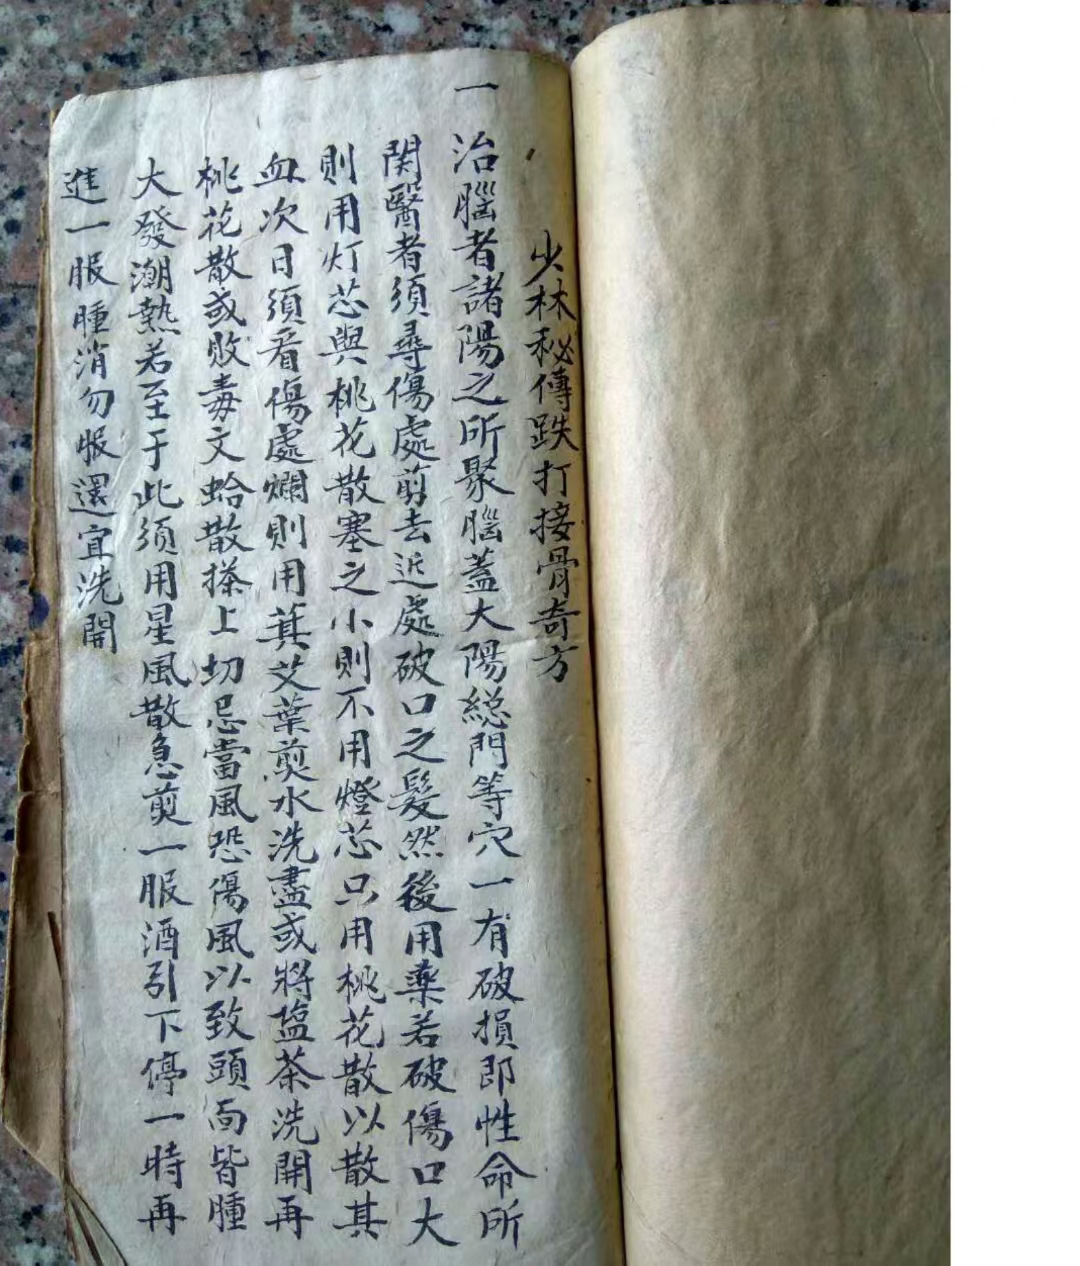 少林秘傳跌打接骨奇方
一治腦者諸陽之所聚腦蓋大陽総門等穴一有破損即性命所
関醫者須尋傷處剪去近處破口之髮然後用藥若破傷口大
則用灯芯與桃花散塞之小則不用燈芯只用桃花散以散其
血次日須看傷處爛則用萁艾葉煎水洗盡或將塩茶洗開再
桃花散或敗毒文蛤散搽上切忌當風恐傷風以致頭面皆腫
大發潮熱若至于此須用星風散急煎一服酒引下停一時再
進一服腫消勿服還宜洗開